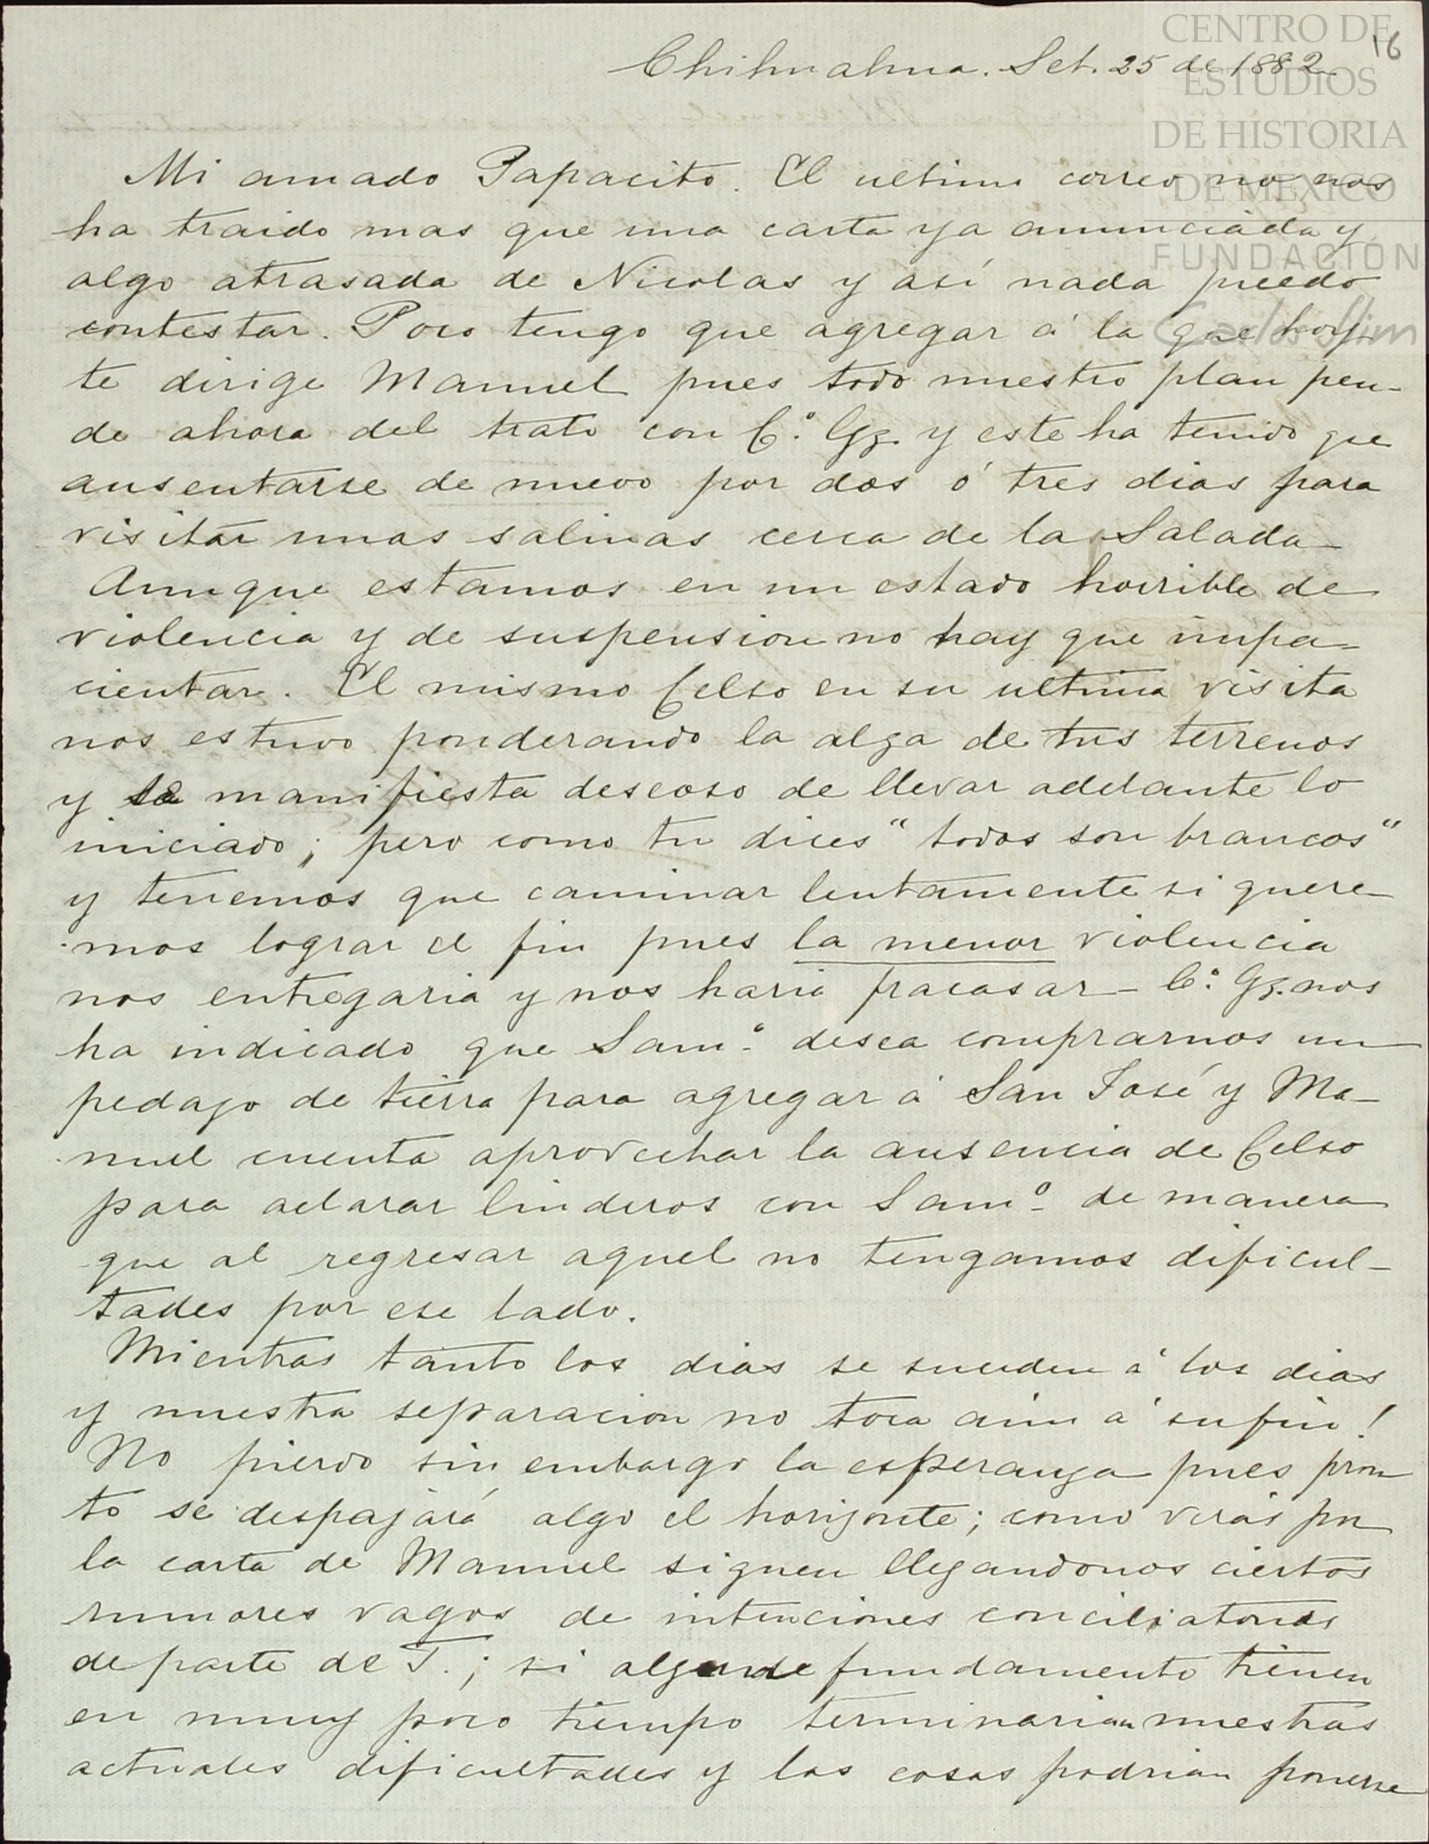 CENTRO DE
ESTUDIOS
DE HISTORIA
DE MEXICO
FUNDACIÓN
Carlos Slim
16
Chihuahua. Set. 25 de 1882
Mi amado Papacito. El ultimo correo no nos
ha traido mas que una carta ya anunciada y
algo atrasada de Nicolas y así nada puedo
contestar. Poco tengo que agregar á la que hoy
te dirige Manuel pues todo nuestro plan pen-
de ahora del trato con C.º Gz. y este ha tenido que
ausentarse de nuevo por dos ó tres dias para
visitar unas salinas cerca de la Salada
Aunque estamos en un estado horrible de
violencia y de suspension no hay que impa-
cientar. El mismo Celso en su ultima visita
nos estuvo ponderando la alga de tus terrenos
y se manifiesta deseoso de llevar adelante lo
iniciado; pero como tu dices "todos son brancos"
y tenemos que caminar lentamente si quere-
mos lograr el fin pues la menor violencia
nos entregaria y nos haria fracasar - C.º Gz. nos
ha indicado que Sam.º desea comprarnos un
pedazo de tierra para agregar á San José y Ma-
nuel cuenta aprovechar la ausencia de Celso
para aclarar linderos con Sam.º de manera
que al regresar aquel no tengamos dificul-
tades por ese lado.
Mientras tanto los dias se suceden á los dias
y nuestra separacion no toca aun á su fin!
No pierdo sin embargo la esperanza pues pron
to se despajará algo el horizonte; como verás por
la carta de Manuel siguen llegandonos ciertos
rumores vagos de intenciones conciliatorias
de parte de T.; si algunde fundamento tienen
en muy poco tiempo terminarian nuestras
actuales dificultades y las cosas podrian ponerse